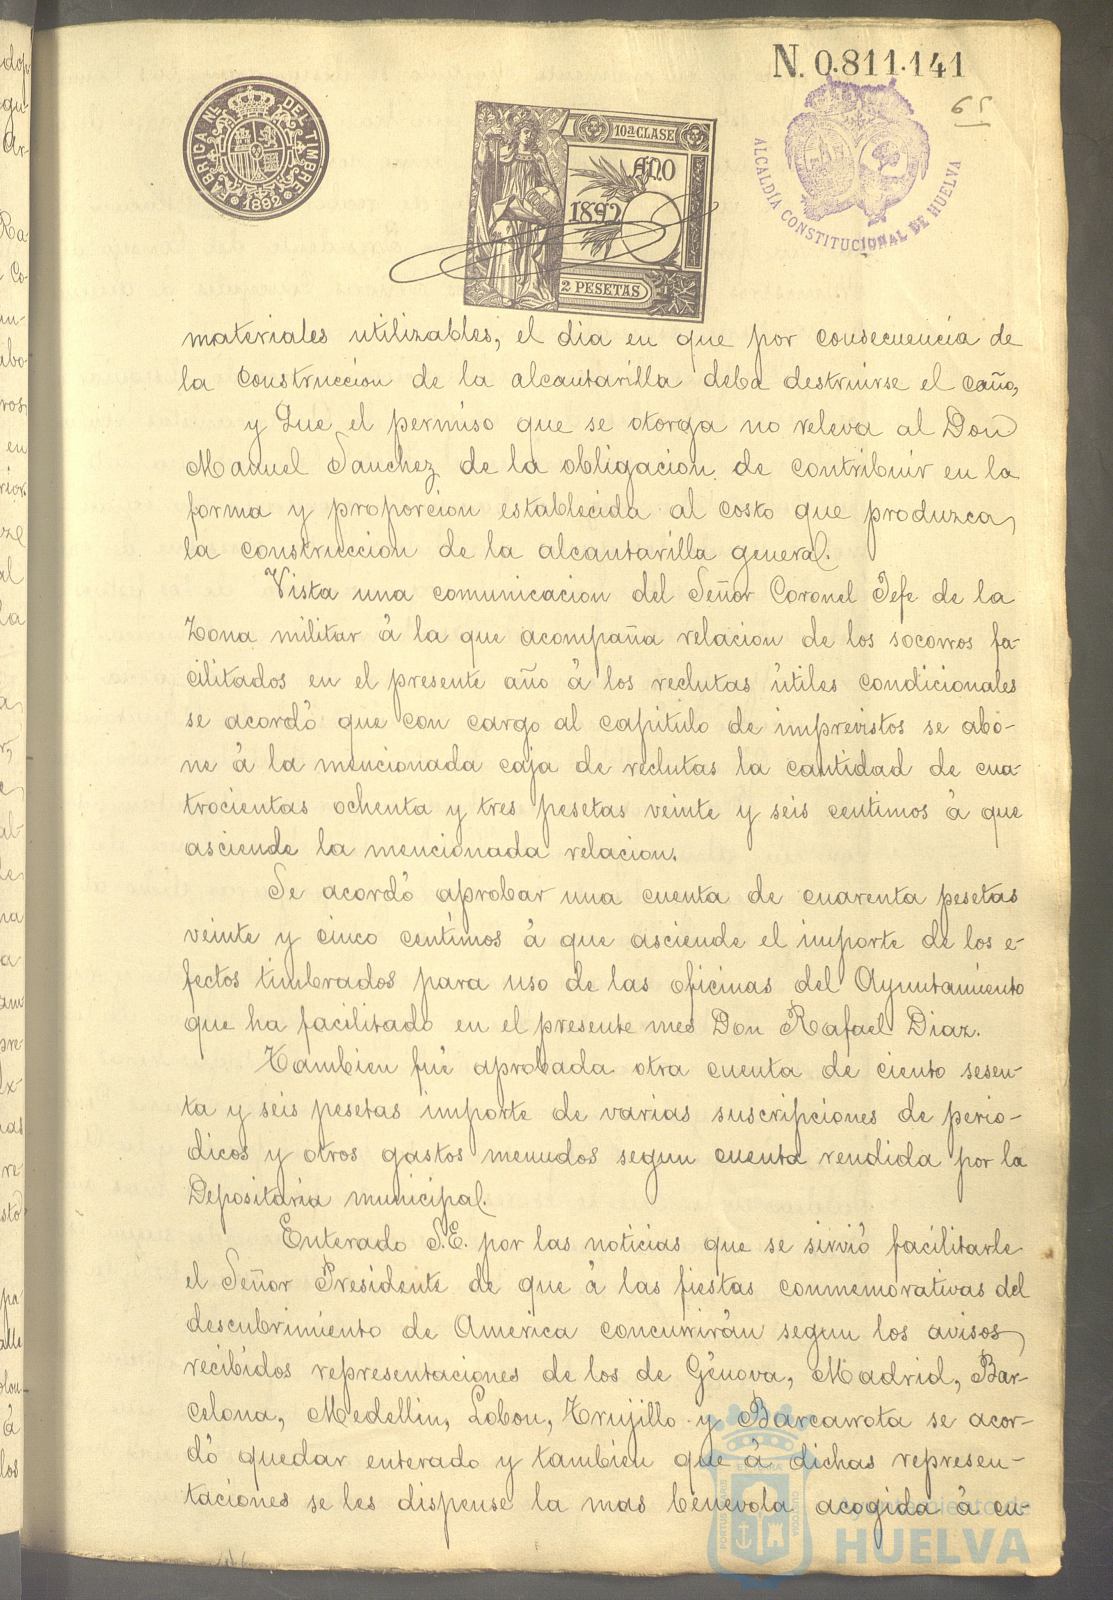 N. 0.811.141
65
FABRICA NL. DEL TIMBRE
1892
10ª CLASE
AÑO
1892
2 PESETAS
ALCALDÍA CONSTITUCIONAL DE HUELVA
materiales utilizables, el dia en que por consecuencia de
la construccion de la alcantarilla deba destruirse el caño,
y Que el permiso que se otorga no releva al Don
Manuel Sanchez de la obligacion de contribuir en la
forma y proporcion establecida al costo que produzca,
la construccion de la alcantarilla general.
Vista una comunicacion del Señor Coronel Jefe de la
Zona militar á la que acompaña relacion de los socorros fa-
cilitados en el presente año á los reclutas útiles condicionales
se acordó que con cargo al capitulo de imprevistos se abo-
ne á la mencionada caja de reclutas la cantidad de cua-
trocientas ochenta y tres pesetas veinte y seis centimos á que
asciende la mencionada relacion.
Se acordó aprobar una cuenta de cuarenta pesetas
veinte y cinco centimos á que asciende el importe de los e-
fectos timbrados para uso de las oficinas del Ayuntamiento
que ha facilitado en el presente mes Don Rafael Diaz.
Tambien fué aprobada otra cuenta de ciento sesen-
ta y seis pesetas importe de varias suscripciones de perio-
dicos y otros gastos menudos segun cuenta rendida por la
Depositaria municipal.
Enterado S.E. por las noticias que se sirvió facilitarle
el Señor Presidente de que á las fiestas conmemorativas del
descubrimiento de America concurirán segun los avisos,
recibidos representaciones de los de Génova, Madrid, Bar-
celona, Medellin, Lobon, Trujillo y Barcarrota se acor-
dó quedar enterado y tambien que á dichas represen-
taciones se les dispense la mas bénevola acogida á cu-
Ayuntamiento de
HUELVA